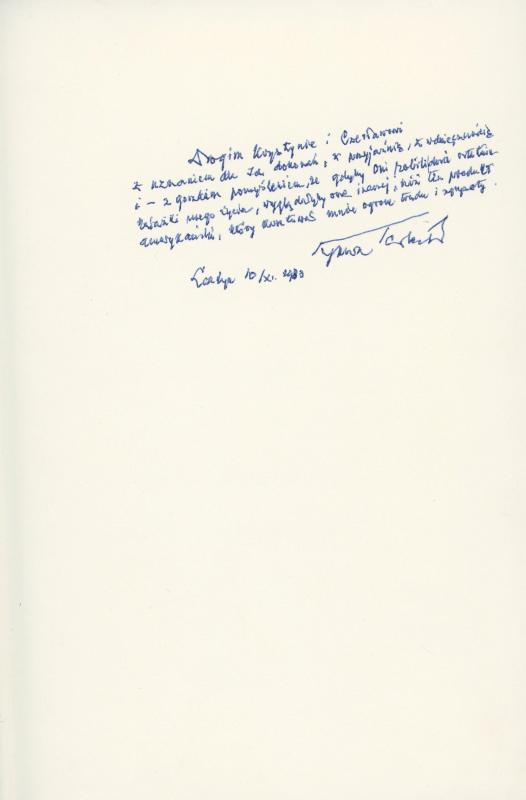 Drogim Krystynie i Czesławowi
z uznaniem dla Ich dokonań, z przyjaźnią, z wdzięcznością
i – z gorzkim pomyśleniem, że gdyby Oni robili
książki mego życia, wyglądałyby one inaczej, niż ten produkt
amerykański, który kosztował mnie ogrom trudu i
Londyn 10/XI. 1983